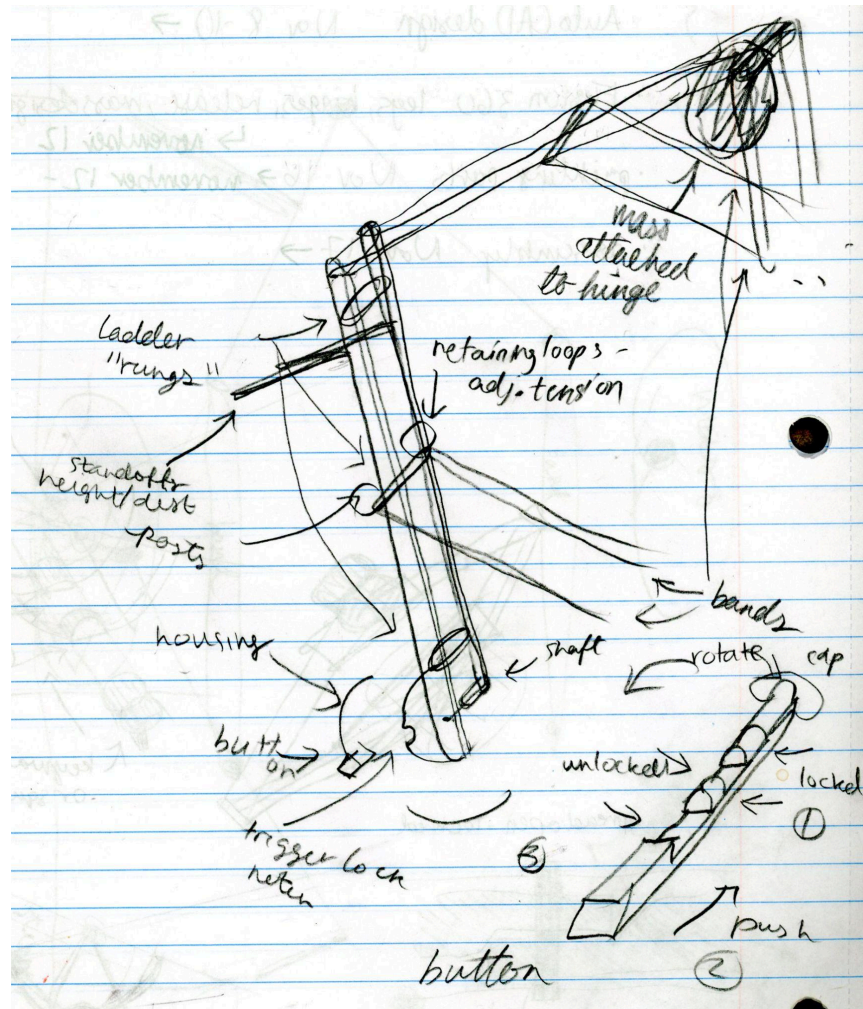 mass
attached
to hinge
ladder
"rungs"
retaining loops -
adj. tension
standoffs
height/dist
posts
bands
housing
shaft
rotate
cap
butt
on
unlocked
locked
①
trigger lock
③
push
button
②